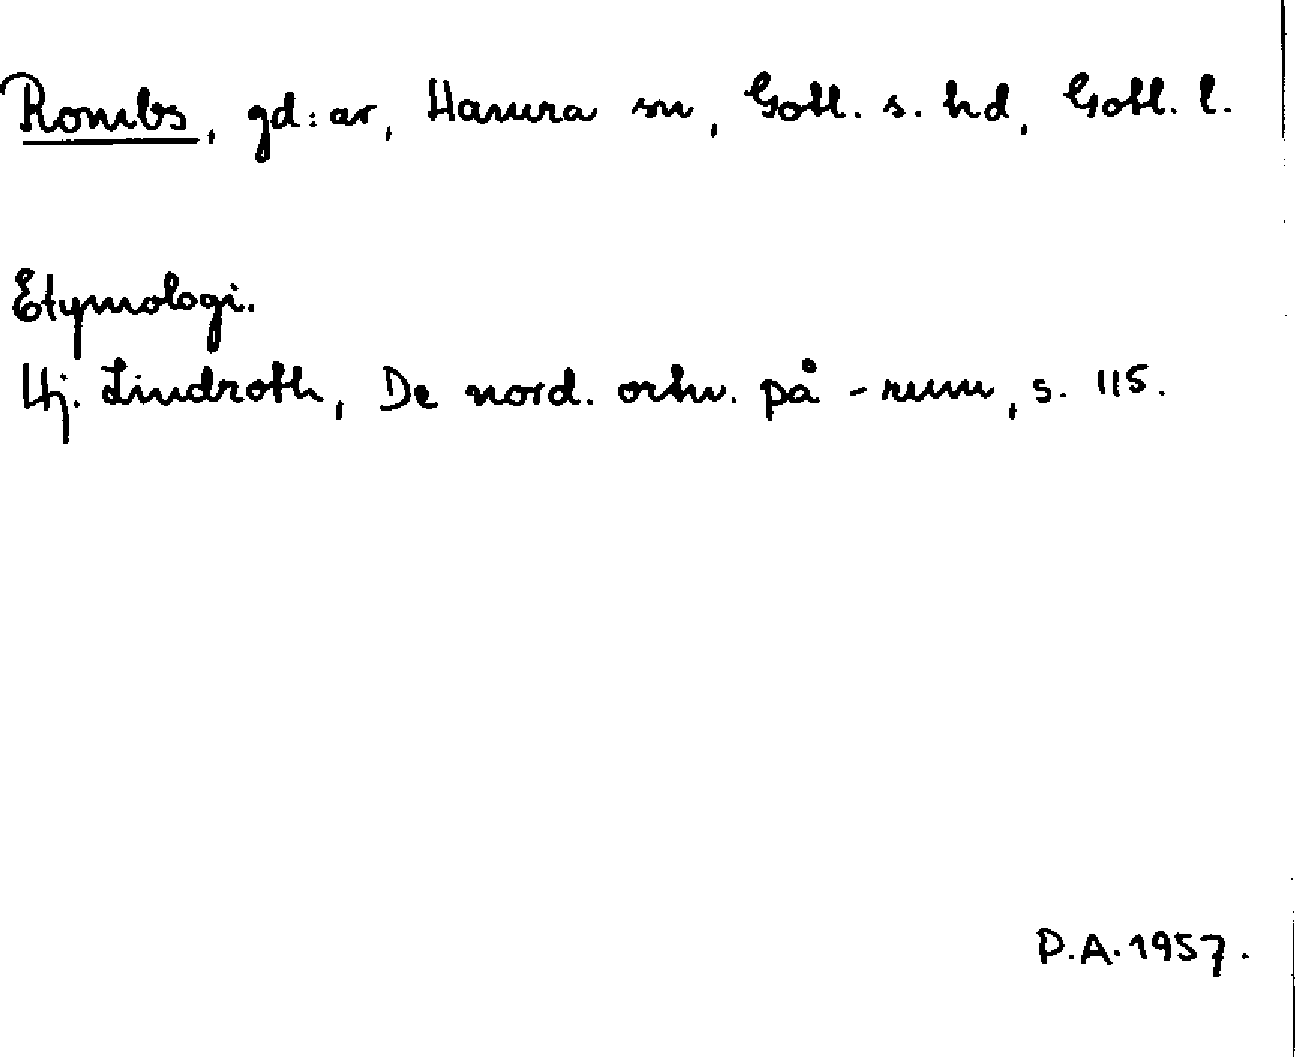 Rombs, gd:ar, Hamra sn, Gotl. s. hd, Gotl. l.
Etymologi.
Hj. Lindroth, De nord. ortn. på -rum, s. 115.
P.A. 1957.